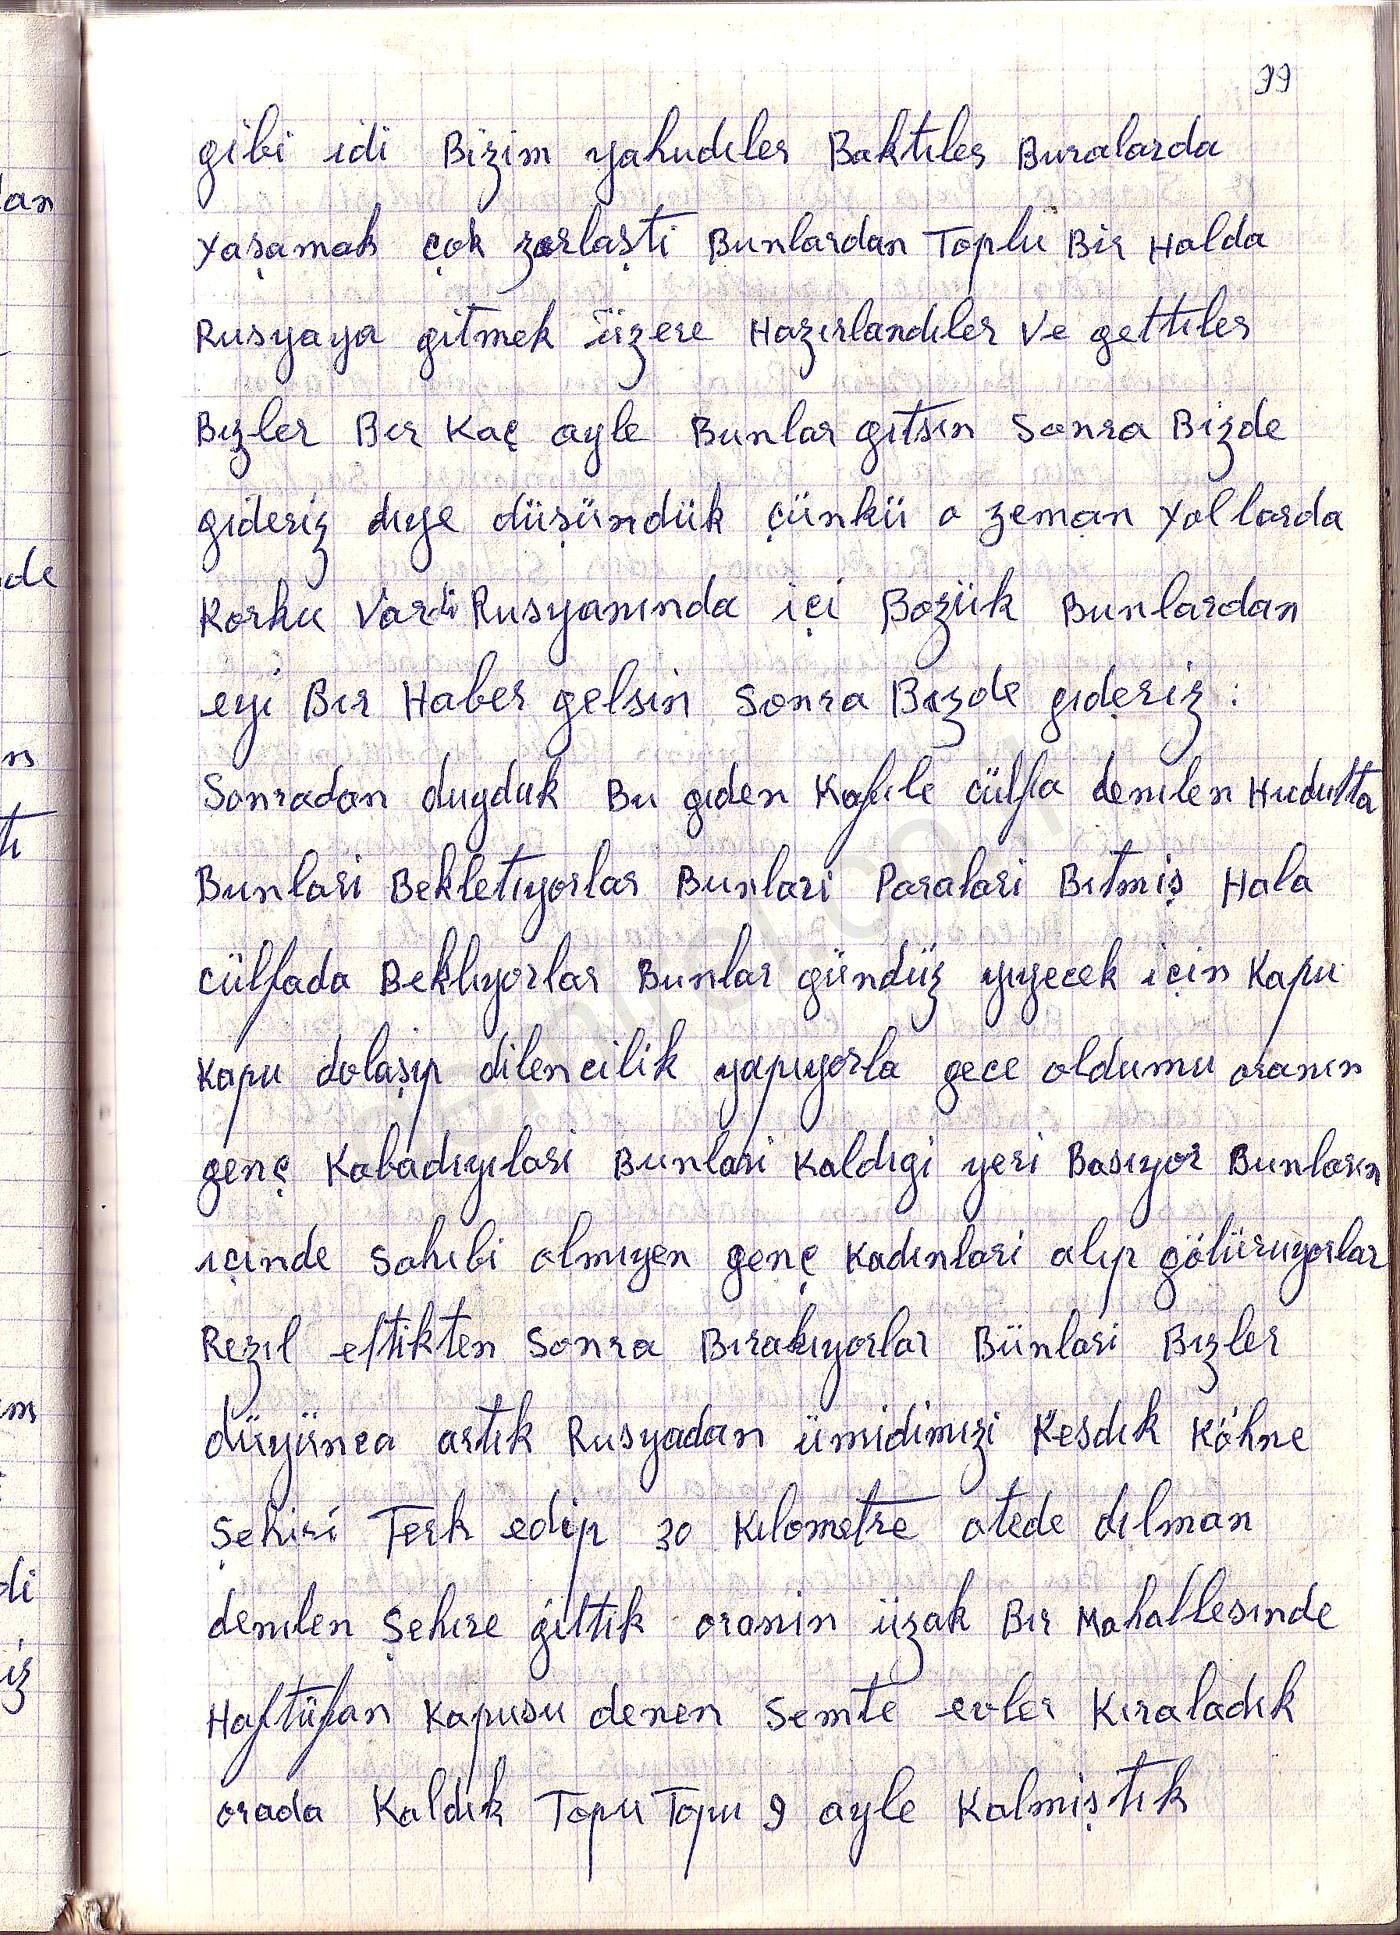 99
gibi idi Bizim yahudıler Baktıler Buralarda
Yaşamak çok zorlaşti Bunlardan Toplu Bir Halda
Rusyaya gitmek üzere Hazırlandıler Ve gettıler
Bızler Bır Kaç ayle Bunlar gıtsın Sonra Bizde
gıderiz dıye düşündük çünkü o zeman Yollarda
Korku Vardi Rusyanında içi Bozük Bunlardan
eyi Bır Haber gelsin Sonra Bızde gıderiz :
Sonradan duyduk Bu gıden Kafıle cülfa denılen Hudutta
Bunlari Bekletıyorlar Bunlari Paralari Bıtmiş Hala
cülfada Beklıyorlar Bunlar gündüz yıyecek için Kapu
Kapu dolaşıp dilencilik yapıyorla gece oldumu oranın
genç Kabadıyılari Bunlari Kaldıgi yeri Basıyor Bunların
ıçınde Sahıbi olmıyen genç Kadınlari alıp götürüyorlar
Rezıl ettikten Sonra Bırakıyorlar Bünlari Bızler
düyünca artık Rusyadan ümidimızi Kesdık Köhne
Şehiri Terk edip 30 Kılometre otede dılman
denılen Şehıre gittık oranin üzak Bır Mahallesınde
Haftüfan Kapusu denen Semte evler Kıraladık
orada Kaldık Topu Topu 9 ayle Kalmiştık
an
de
n
tı
ım
di
iz
demirel.com